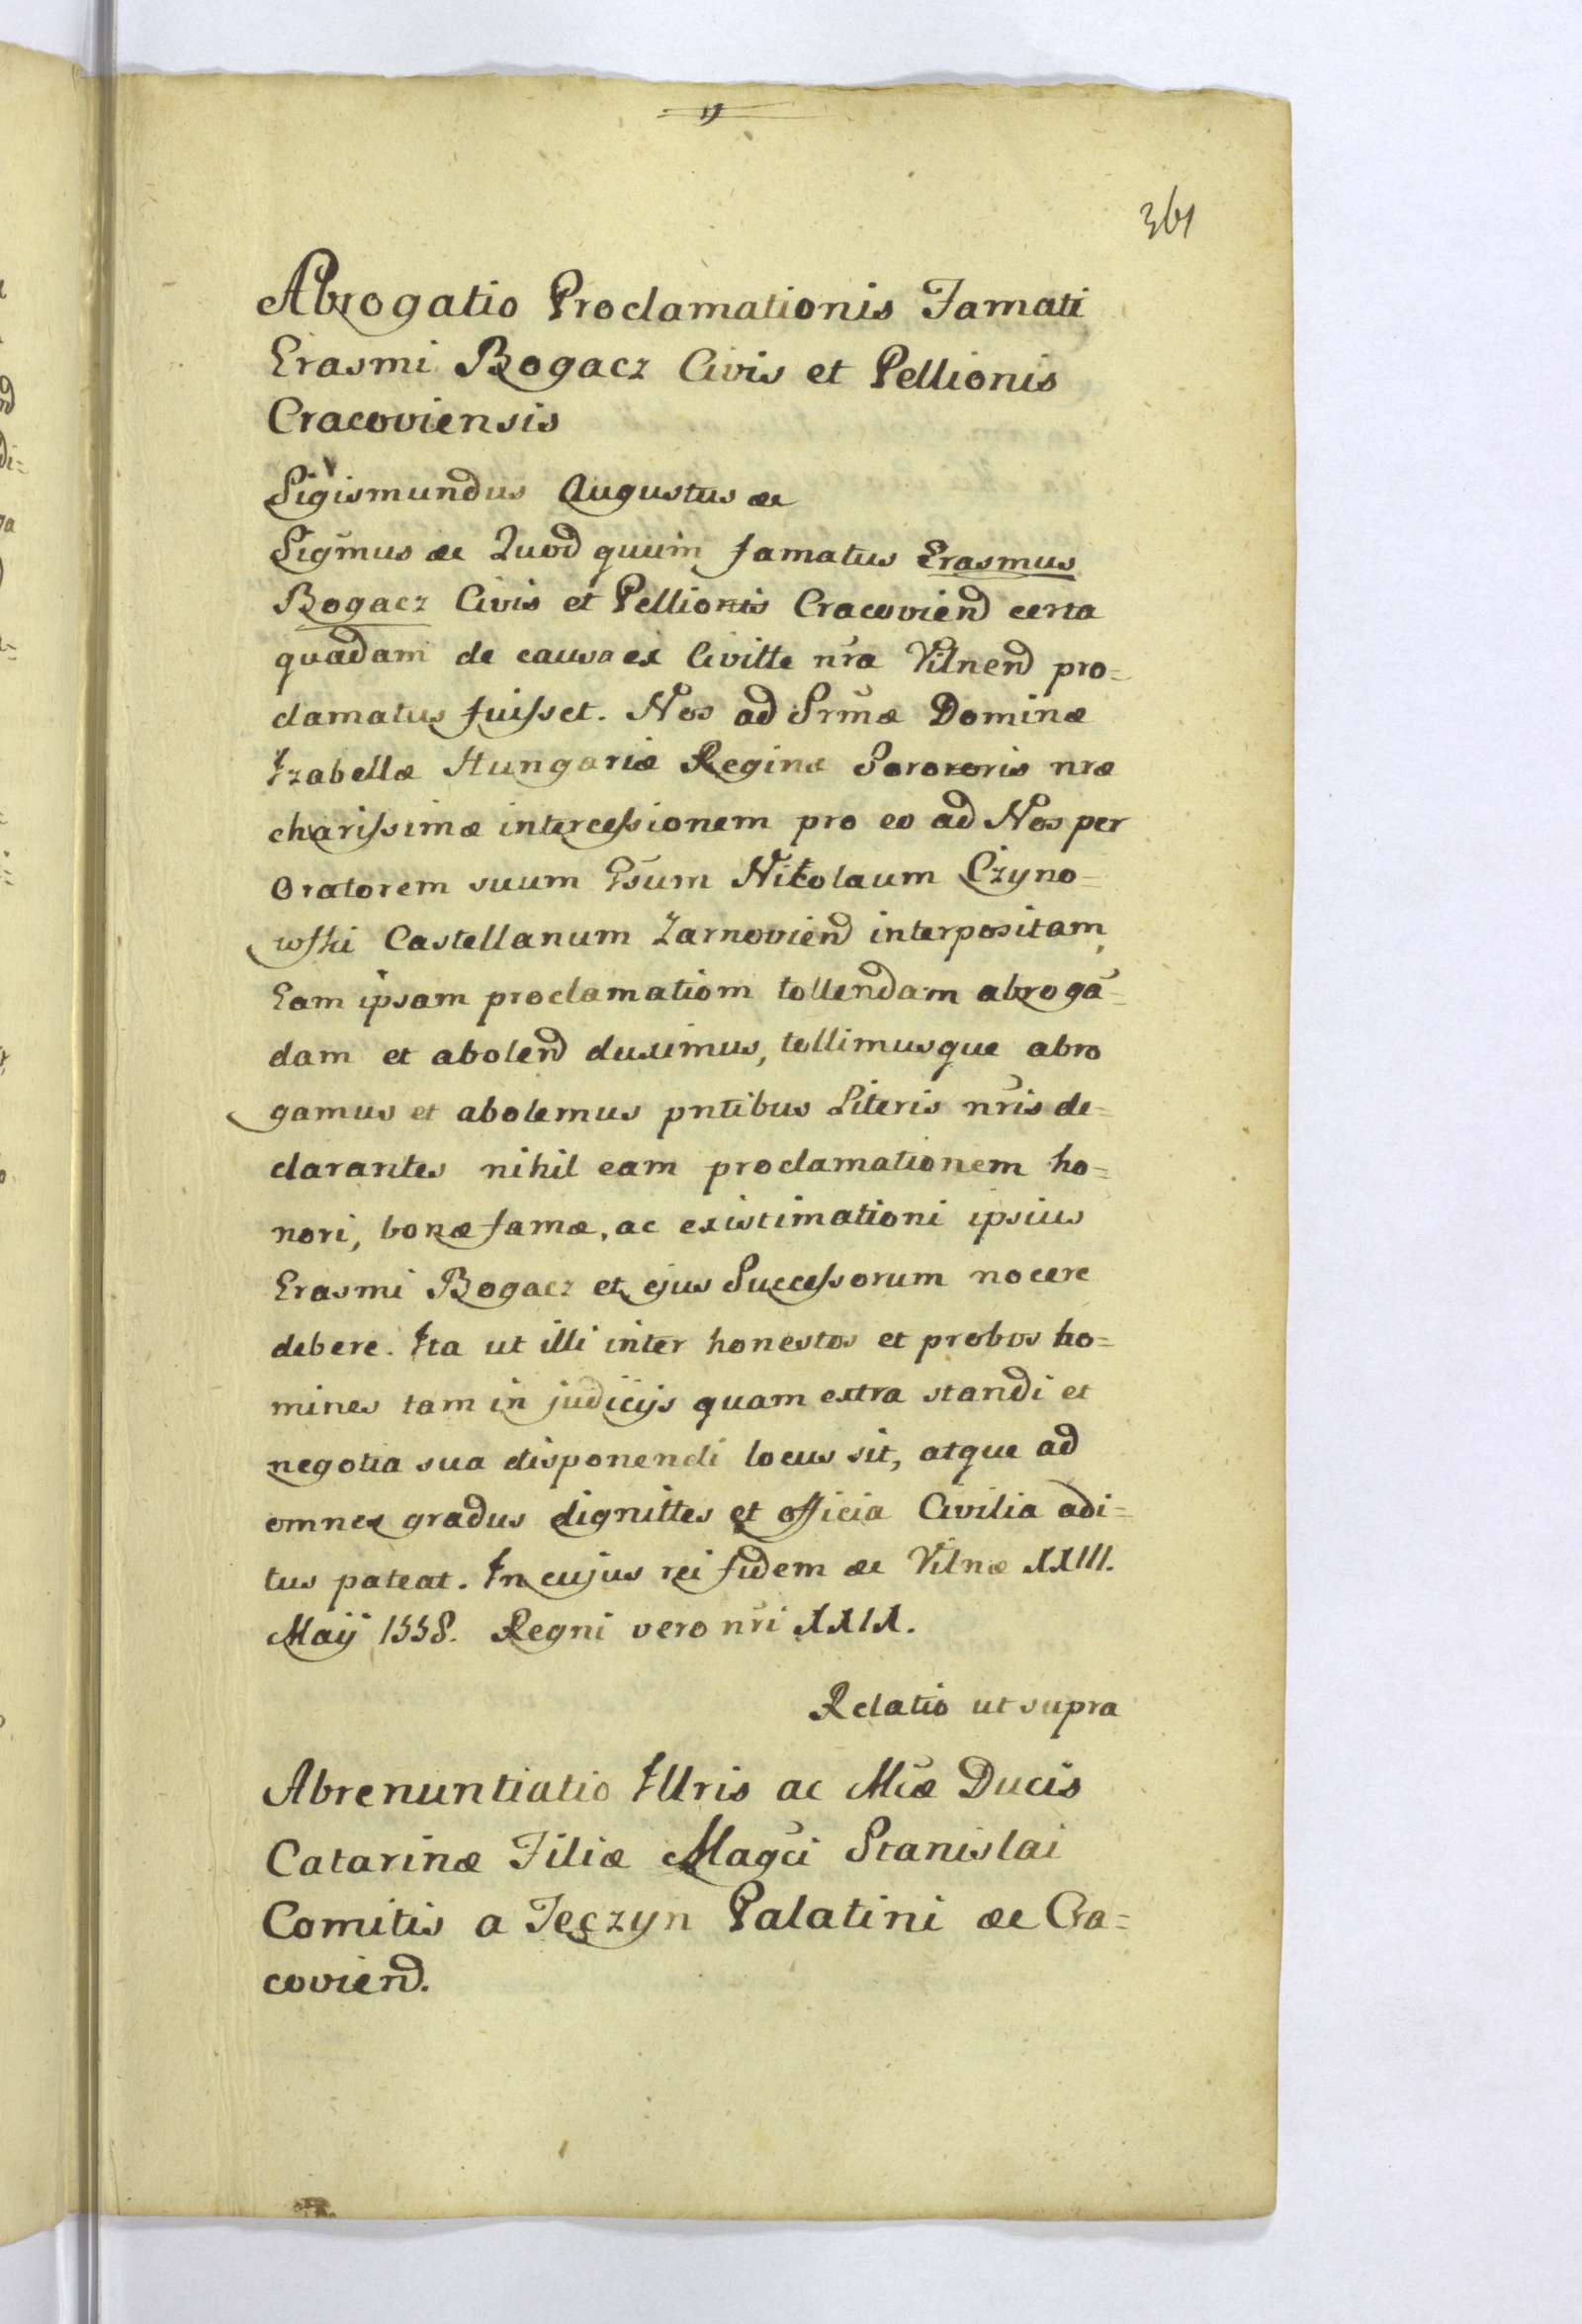 361
Abrogatio Proclamationis Famati
Erasmi Bogacz Civis et Pellionis
Cracoviensis
Sigismundus Augustus &c
Sigmus &c Quod quum famatus Erasmus
Bogacz Civis et Pellionis Cracovien certa
quadam de causa ex Civitte nra Vilnen pro=
clamatus fuisset. Nos ad Srmæ Dominæ
Izabellæ Hungariæ Reginæ Sorororis nræ
charissimæ intercessionem pro eo ad Nos per
Oratorem suum Gsum Nicolaum Czyno=
wski Castellanum Zarnovien interpositam,
Eam ipsam proclamatiom tollendam abrogā=
dam et abolend duximus, tollimusque abro
gamus et abolemus pntibus Literis nris de=
clarantes nihil eam proclamationem ho=
nori, bonæ famæ, ac existimationi ipsius
Erasmi Bogacz et ejus Successorum nocere
debere. Ita ut illi inter honestos et probos ho=
mines tam in judicijs quam extra standi et
negotia sua disponendi locus sit, atque ad
omnes gradus dignittes et officia Civilia adi=
tus pateat. In cujus rei fidem &c Vilnæ XXIII.
Maij 1558. Regni vero nri XXIX.
Relatio ut supra
Abrenuntiatio Illris ac Mcæ Ducis
Catarinæ Filiæ Magci Stanislai
Comitis a Tęczyn Palatini &c Cra=
covien.